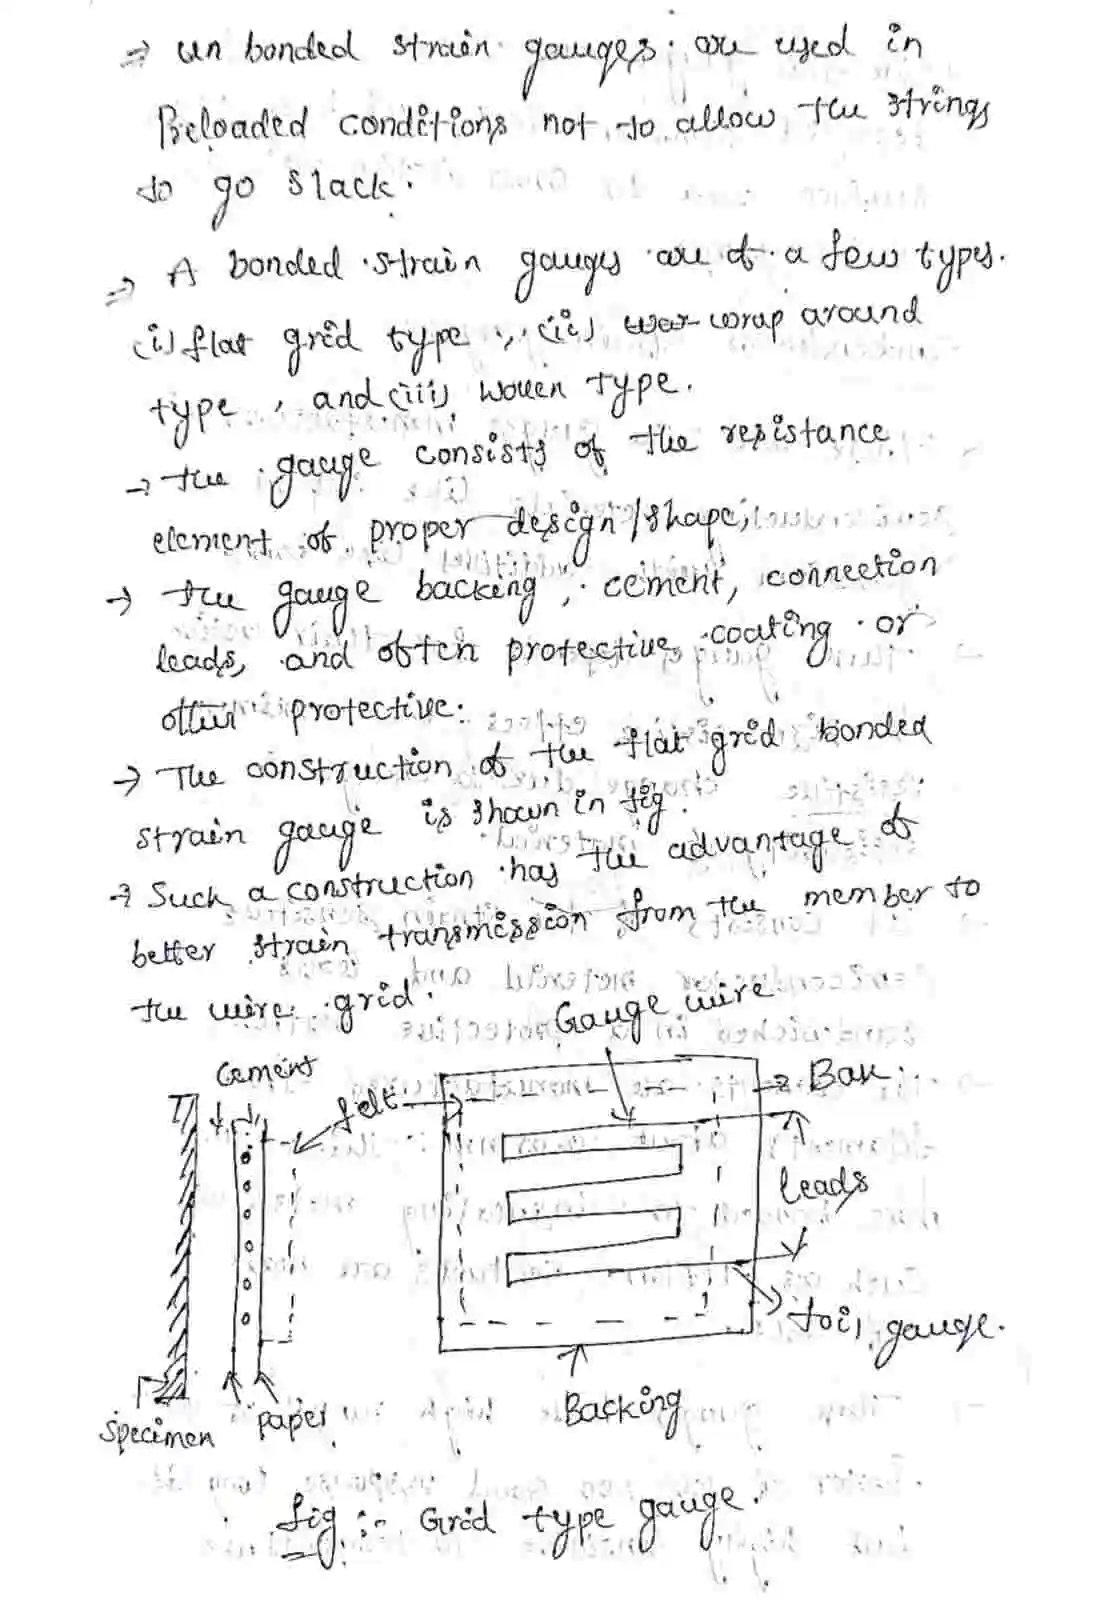 ⇒ un bonded strain gauges are used in
Preloaded conditions not to allow the strings
to go slack.
⇒ A bonded strain gauges are of a few types.
(i) flat grid type, (ii) wrap around
type, and (iii) woven type.
→ the gauge consists of the resistance
element of proper design/shape,
→ the gauge backing, cement, connection
leads, and often protective coating or
other protective.
→ The construction of the flat grid bonded
strain gauge is shown in fig.
→ Such a construction has the advantage of
better strain transmission from the member to
the wire grid.
Gauge wire
Cement
felt
leads
foil gauge.
specimen
paper
Backing
fig :- Grid type gauge.